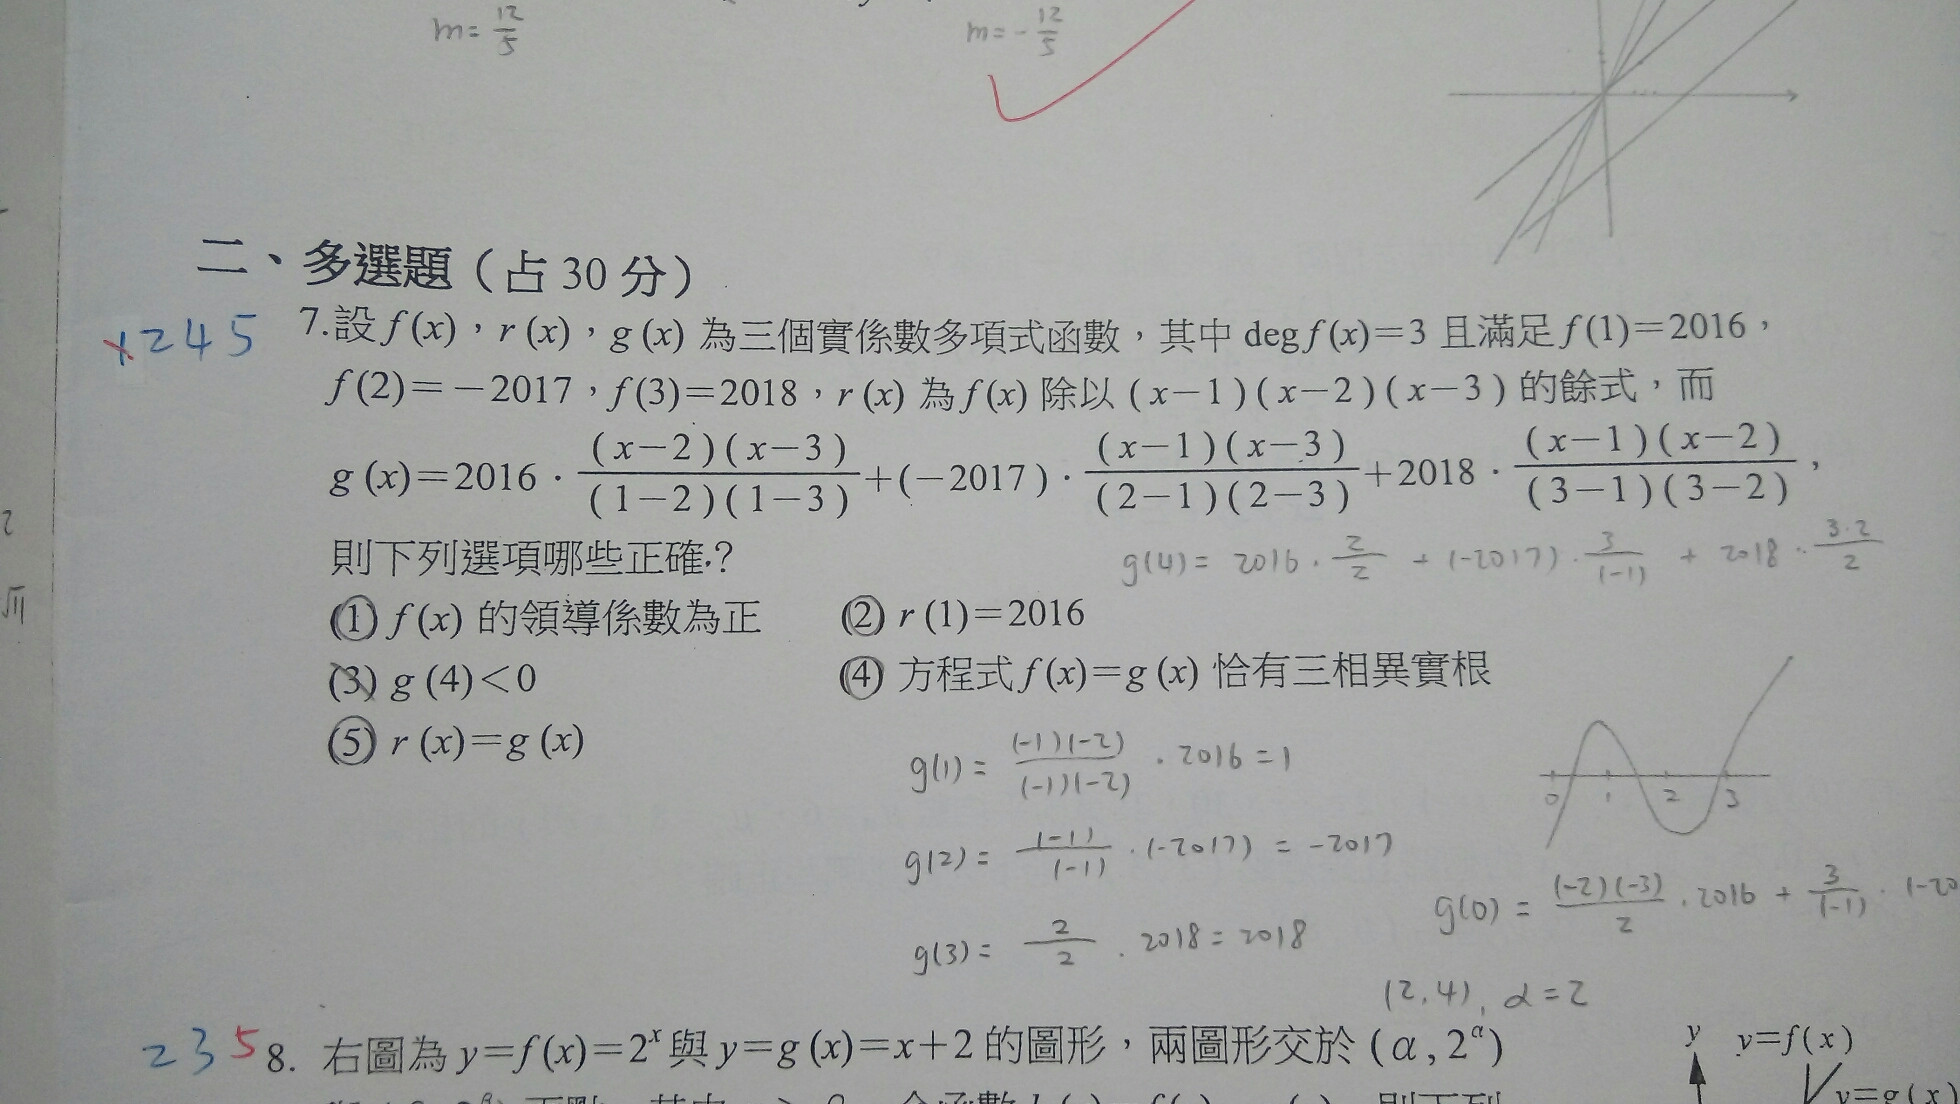 m=12/5 m=-12/5
二、多選題（占 30 分）
1245 7.設 f(x)，r(x)，g(x) 為三個實係數多項式函數，其中 deg f(x)=3 且滿足 f(1)=2016，
f(2)=-2017，f(3)=2018，r(x) 為 f(x) 除以 (x-1)(x-2)(x-3) 的餘式，而
g(x)=2016·(x-2)(x-3)/(1-2)(1-3)+(-2017)·(x-1)(x-3)/(2-1)(2-3)+2018·(x-1)(x-2)/(3-1)(3-2)，
則下列選項哪些正確？
g(4)= 2016·2/2 + (-2017)·3/(-1) + 2018·3·2/2
(1) f(x) 的領導係數為正 (2) r(1)=2016
(3) g(4)<0 (4) 方程式 f(x)=g(x) 恰有三相異實根
(5) r(x)=g(x)
g(1)= (-1)(-2)/(-1)(-2) · 2016 = 1
0 1 2 3
g(2)= (-1)/(-1) · (-2017) = -2017
g(0) = (-2)(-3)/2 · 2016 + 3/(-1) · (-20
g(3)= 2/2 · 2018 = 2018
(2,4), α=2
235 8. 右圖為 y=f(x)=2^x 與 y=g(x)=x+2 的圖形，兩圖形交於 (α, 2^α)
y y=f(x)
y=g(x)